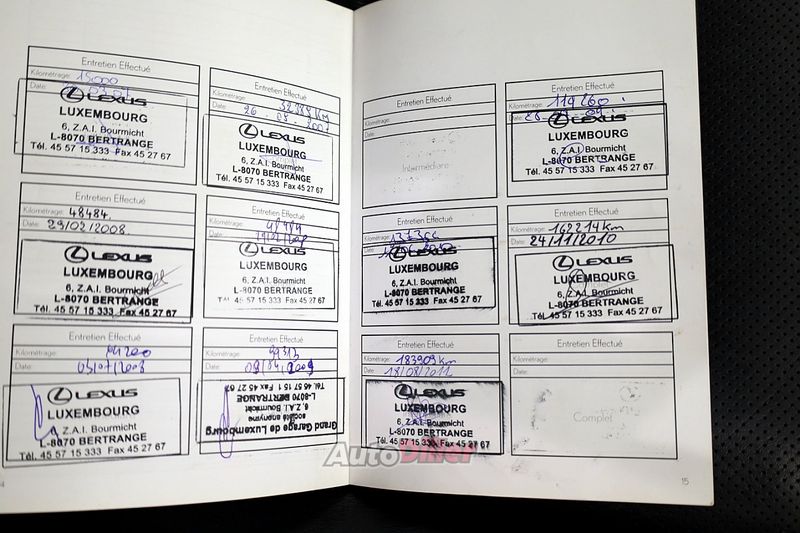 Entretien Effectué
Kilométrage: 15000
Date:
LEXUS
LUXEMBOURG
6, Z.A.I. Bourmicht
L-8070 BERTRANGE
Tél. 45 57 15 333 Fax 45 27 67
Entretien Effectué
Kilométrage:
Date: 26.08.2007
LEXUS
LUXEMBOURG
6, Z.A.I. Bourmicht
L-8070 BERTRANGE
Tél. 45 57 15 333 Fax 45 27 67
Entretien Effectué
Kilométrage: 48484
Date: 29/02/2008
LEXUS
LUXEMBOURG
6, Z.A.I. Bourmicht
L-8070 BERTRANGE
Tél. 45 57 15 333 Fax 45 27 67
Entretien Effectué
Kilométrage: 48484
Date:
LEXUS
LUXEMBOURG
6, Z.A.I. Bourmicht
L-8070 BERTRANGE
Tél. 45 57 15 333 Fax 45 27 67
Entretien Effectué
Kilométrage:
Date: 03/07/2008
LEXUS
LUXEMBOURG
6, Z.A.I. Bourmicht
L-8070 BERTRANGE
Tél. 45 57 15 333 Fax 45 27 67
Entretien Effectué
Kilométrage: 99313
Date: 08/04/2009
Grand Garage de Luxembourg
société anonyme
6, Z.A.I. Bourmicht
L-8070 BERTRANGE
Tél. 45 57 15 1 Fax 45 27 63
Entretien Effectué
Kilométrage:
Date:
Intermédiaire
Entretien Effectué
Kilométrage: 119260
Date:
LEXUS
LUXEMBOURG
6, Z.A.I. Bourmicht
L-8070 BERTRANGE
Tél. 45 57 15 333 Fax 45 27 67
Entretien Effectué
Kilométrage:
Date:
LEXUS
LUXEMBOURG
6, Z.A.I. Bourmicht
L-8070 BERTRANGE
Tél. 45 57 15 333 Fax 45 27 67
Entretien Effectué
Kilométrage: 162214km
Date: 24/11/2010
LEXUS
LUXEMBOURG
6, Z.A.I. Bourmicht
L-8070 BERTRANGE
Tél. 45 57 15 333 Fax 45 27 67
Entretien Effectué
Kilométrage: 183909 km
Date: 18/08/2011
LEXUS
LUXEMBOURG
6, Z.A.I. Bourmicht
L-8070 BERTRANGE
Tél. 45 57 15 333 Fax 45 27 67
Entretien Effectué
Kilométrage:
Date:
Complet
AutoDiler
15